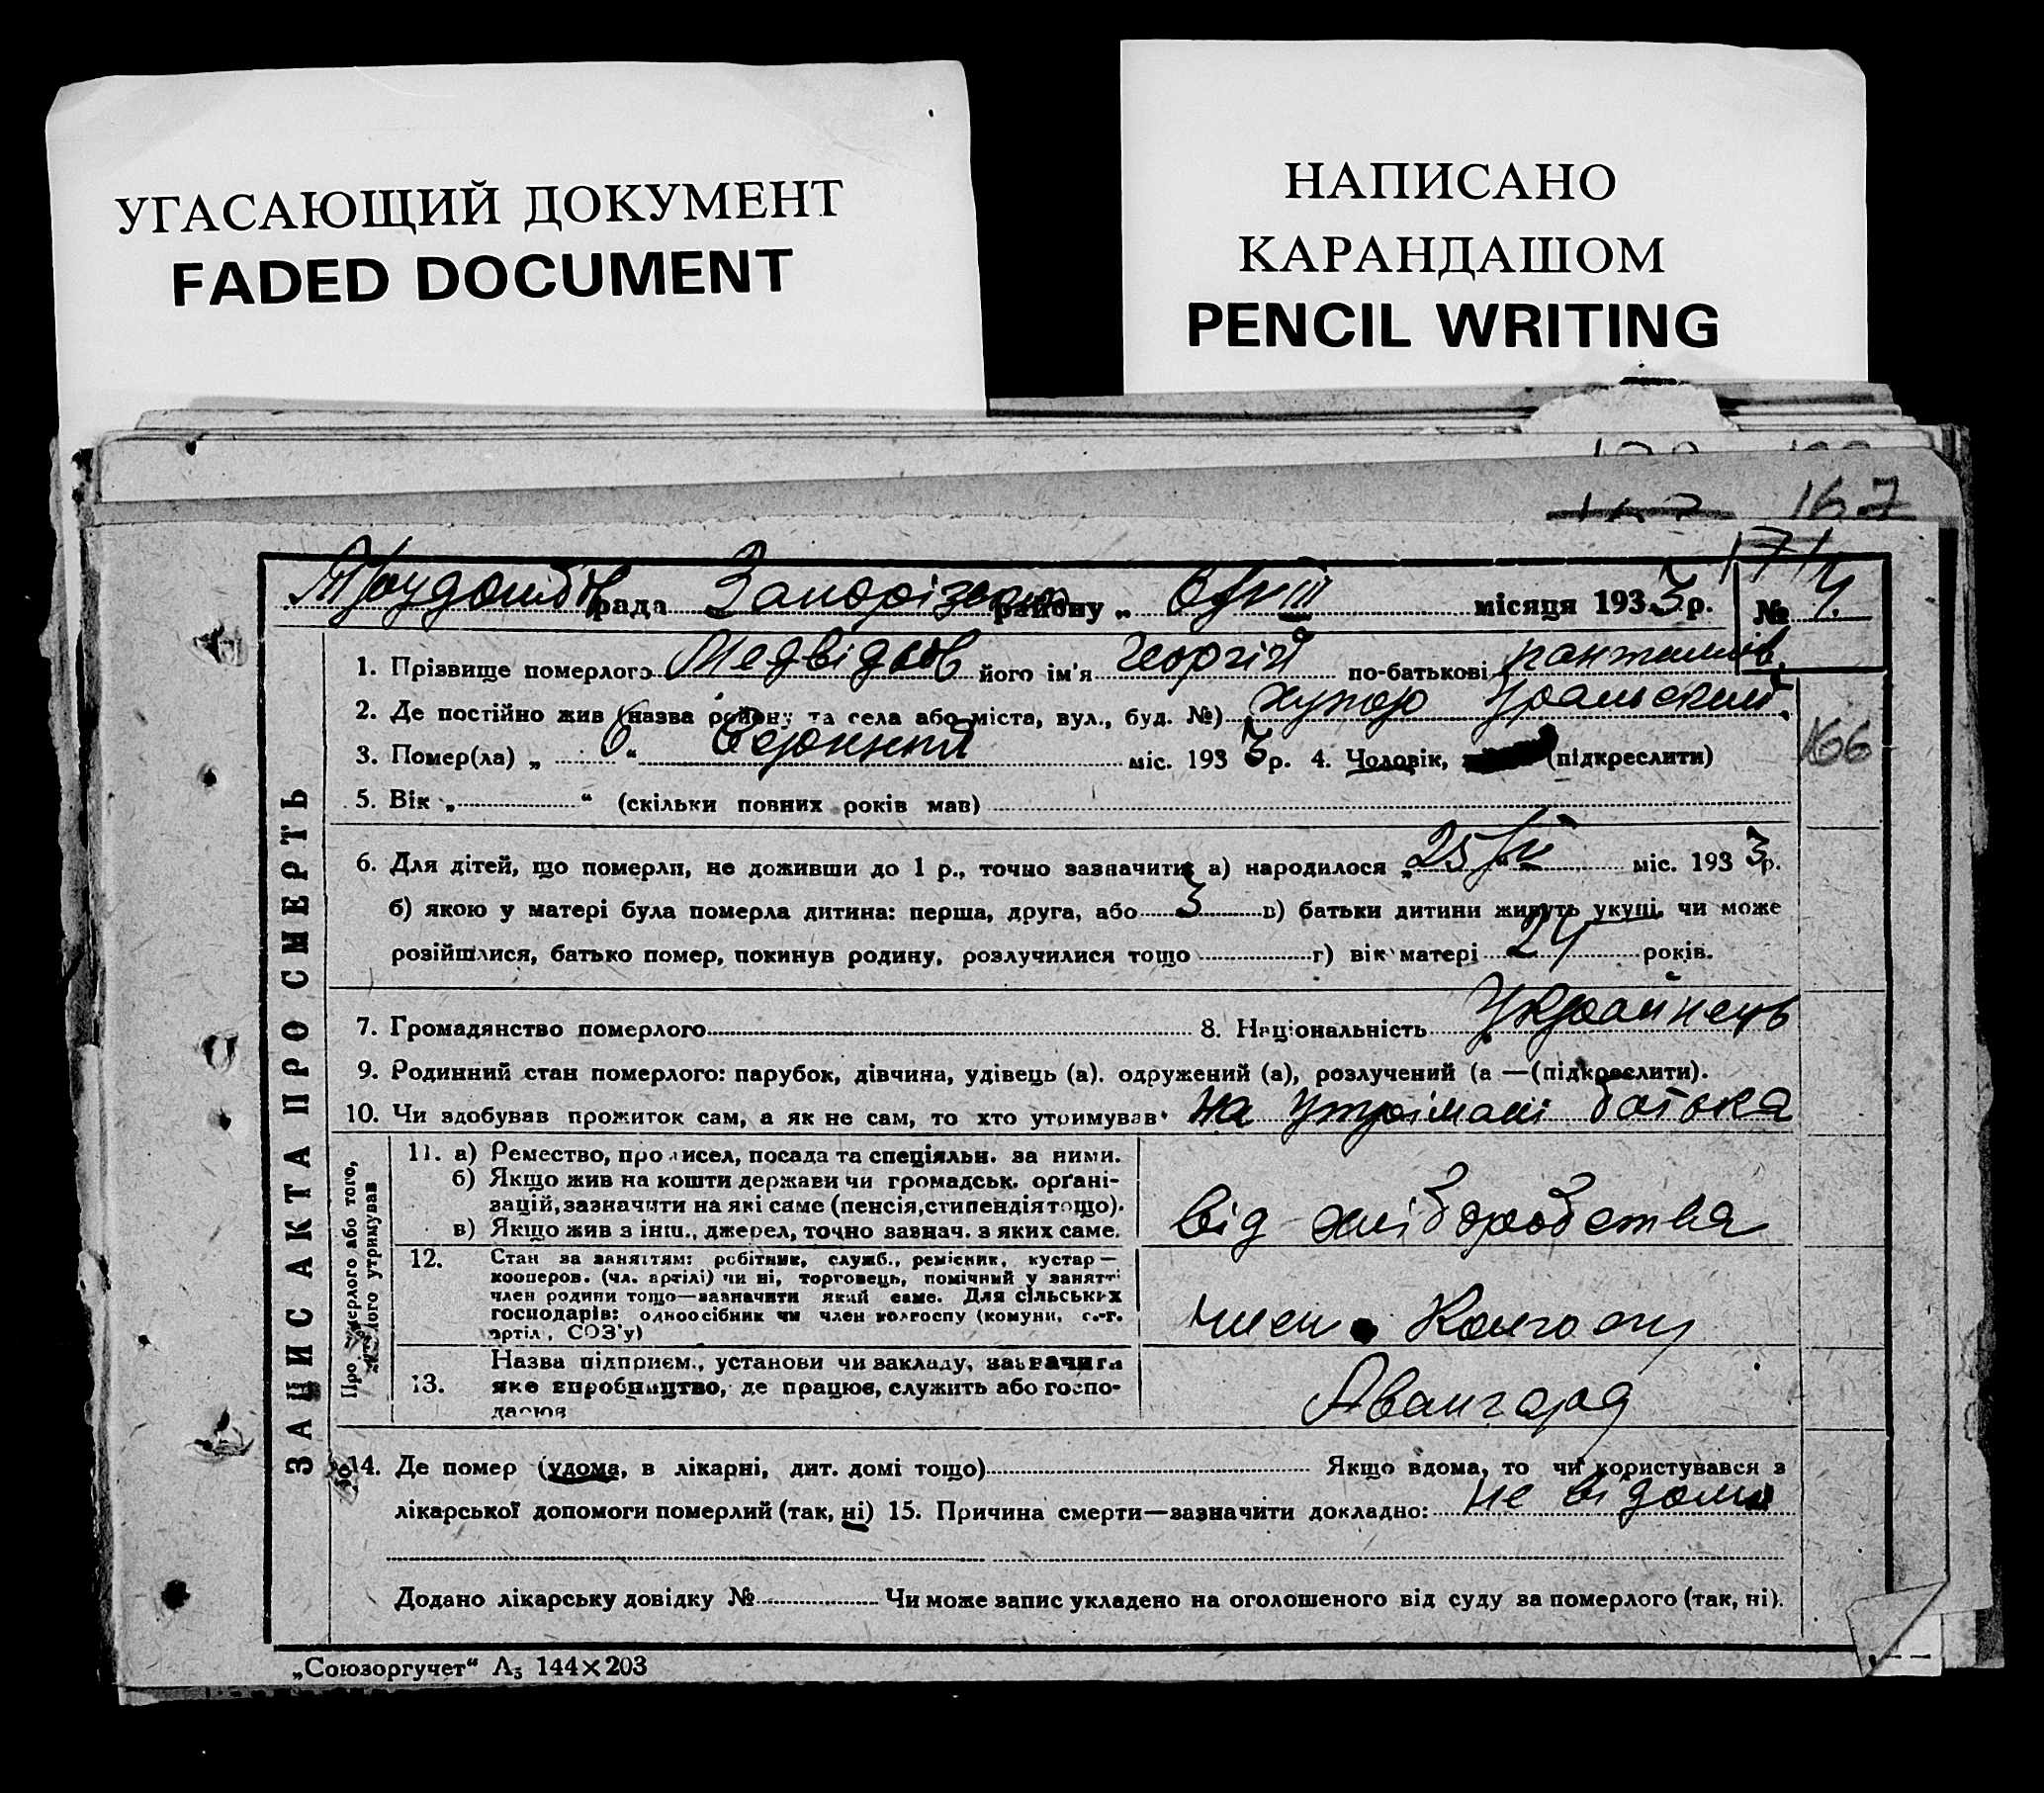 УГАСАЮЩИЙ ДОКУМЕНТ
FADED DOCUMENT
НАПИСАНО
КАРАНДАШОМ
PENCIL WRITING
167
171
рада Запорізьког району „ 6/VIII місяця 1933 р. № 4
1. Прізвище померлого Медвідков його ім'я Георгій по-батькові
2. Де постійно жив (назва району та села або міста, вул., буд. №) хутор Уральский
166
3. Помер(ла) „ 6 “ Серпння міс. 1933 р. 4. Чоловік, (підкреслити)
5. Вік „ “ (скільки повних років мав)
6. Для дітей, що померли, не доживши до 1 р., точно зазначити а) народилося „ 25/ міс. 1933 р.
б) якою у матері була померла дитина: перша, друга, або 3 в) батьки дитини живуть укупі, чи може
розійшлися, батько помер, покинув родину, розлучилися тощо г) вік матері 24 років.
7. Громадянство померлого 8. Національність Украинець
9. Родинний стан померлого: парубок, дівчина, удівець (а). одружений (а), розлучений (а —(підкреслити).
10. Чи здобував прожиток сам, а як не сам, то хто утримував На утрімані батька
ЗАПИС АКТА ПРО СМЕРТЬ
Про померлого або того, хто його утримував
11. а) Ремество, промисел, посада та спеціяльн. за ними.
б) Якщо жив на кошти держави чи громадськ. орґані-
зацій, зазначити на які саме (пенсія, стипендія тощо).
в) Якщо жив з інш., джерел, точно зазнач. з яких саме.
від хліборобства
12. Стан за заняттям: робітник, служб., ремісник, кустар —
кооперов. (чл. артілі) чи ні, торговець, помічний у занятті
член родини тощо—зазначити який саме. Для сільських
господарів: одноосібник чи член колгоспу (комуни, с.-г.
артіл., СОЗ'у)
член Колгоспу
13. Назва підприєм., установи чи закладу, зазначити
яке виробництво, де працює, служить або госпо-
дарює
Авангард
14. Де помер (удома, в лікарні, дит. домі тощо) Якщо вдома, то чи користувався з
лікарської допомоги померлий (так, ні) 15. Причина смерти—зазначити докладно: не відома
Додано лікарську довідку № Чи може запис укладено на оголошеного від суду за померлого (так, ні).
„Союзоргучет“ А₅ 144×203